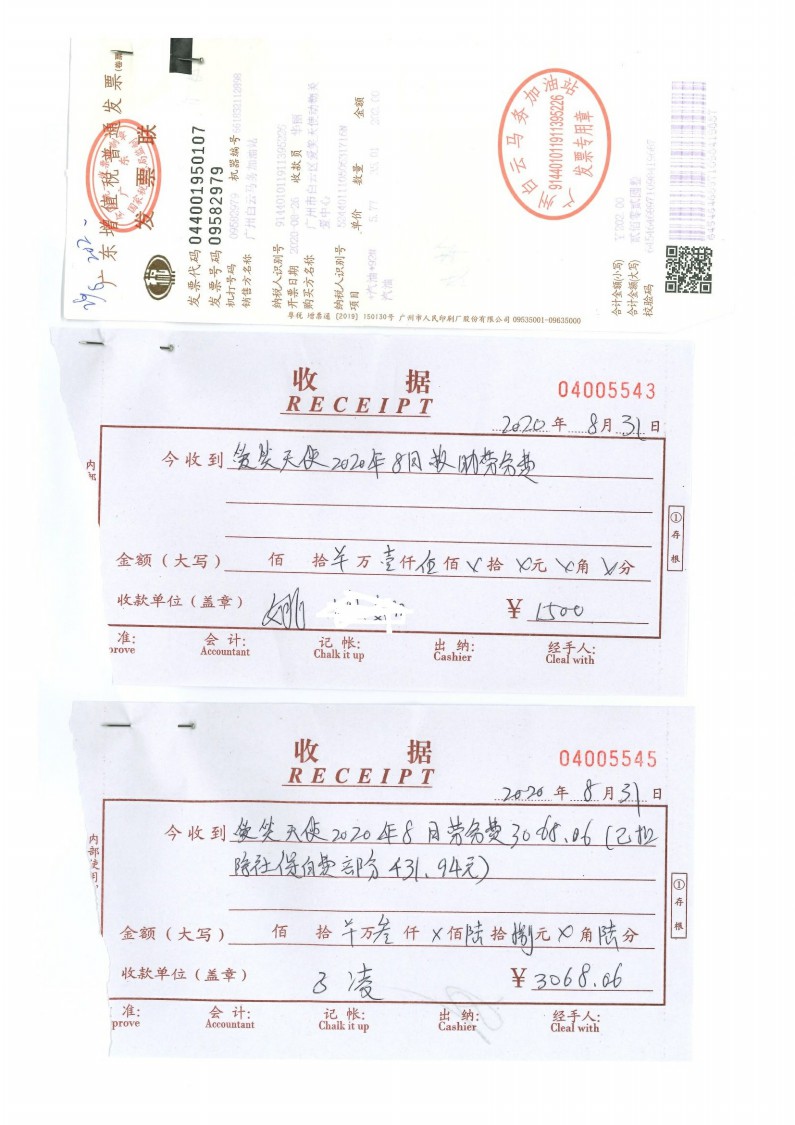 广东增值税普通发票(卷票)
发票联
发票代码 044001950107
发票号码 09582979
机打号码 09582979 机器编号
销售方名称
纳税人识别号 914401011911395226
开票日期 2020-08-26 收款员
购买方名称
纳税人识别号
项目 单价 数量 金额
*汽油*92#
汽油 5.77 35.01 202.00
合计金额(小写) ¥202.00
合计金额(大写) 贰佰零贰圆整
校验码
白云马务加油站
914401011911395226
发票专用章
粤税 增票通 [2019] 150130号 广州市人民印刷厂股份有限公司 09535001-09635000
收 据
RECEIPT
04005543
2020年 8月31日
今收到 天使2020年8月救助劳务费
金额(大写) 佰 拾 万壹仟伍佰 拾 元 角 分
收款单位(盖章) ¥1500
准: 会 计: 记 帐: 出 纳: 经手人:
prove Accountant Chalk it up Cashier Cleal with
内部
①存根
收 据
RECEIPT
04005545
2020年 8月31日
今收到 天使2020年8月劳务费3068.06(已扣
除社保自费部分431.94元)
金额(大写) 佰 拾 万叁仟×佰陆拾捌元×角陆分
收款单位(盖章) 凌 ¥3068.06
准: 会 计: 记 帐: 出 纳: 经手人:
prove Accountant Chalk it up Cashier Cleal with
内部使用
①存根